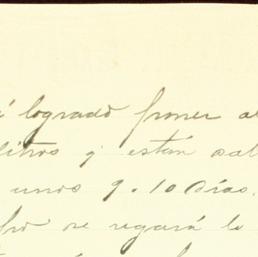 logrado poner al
litros y están sal
unos 9.10 días.
se regará lo